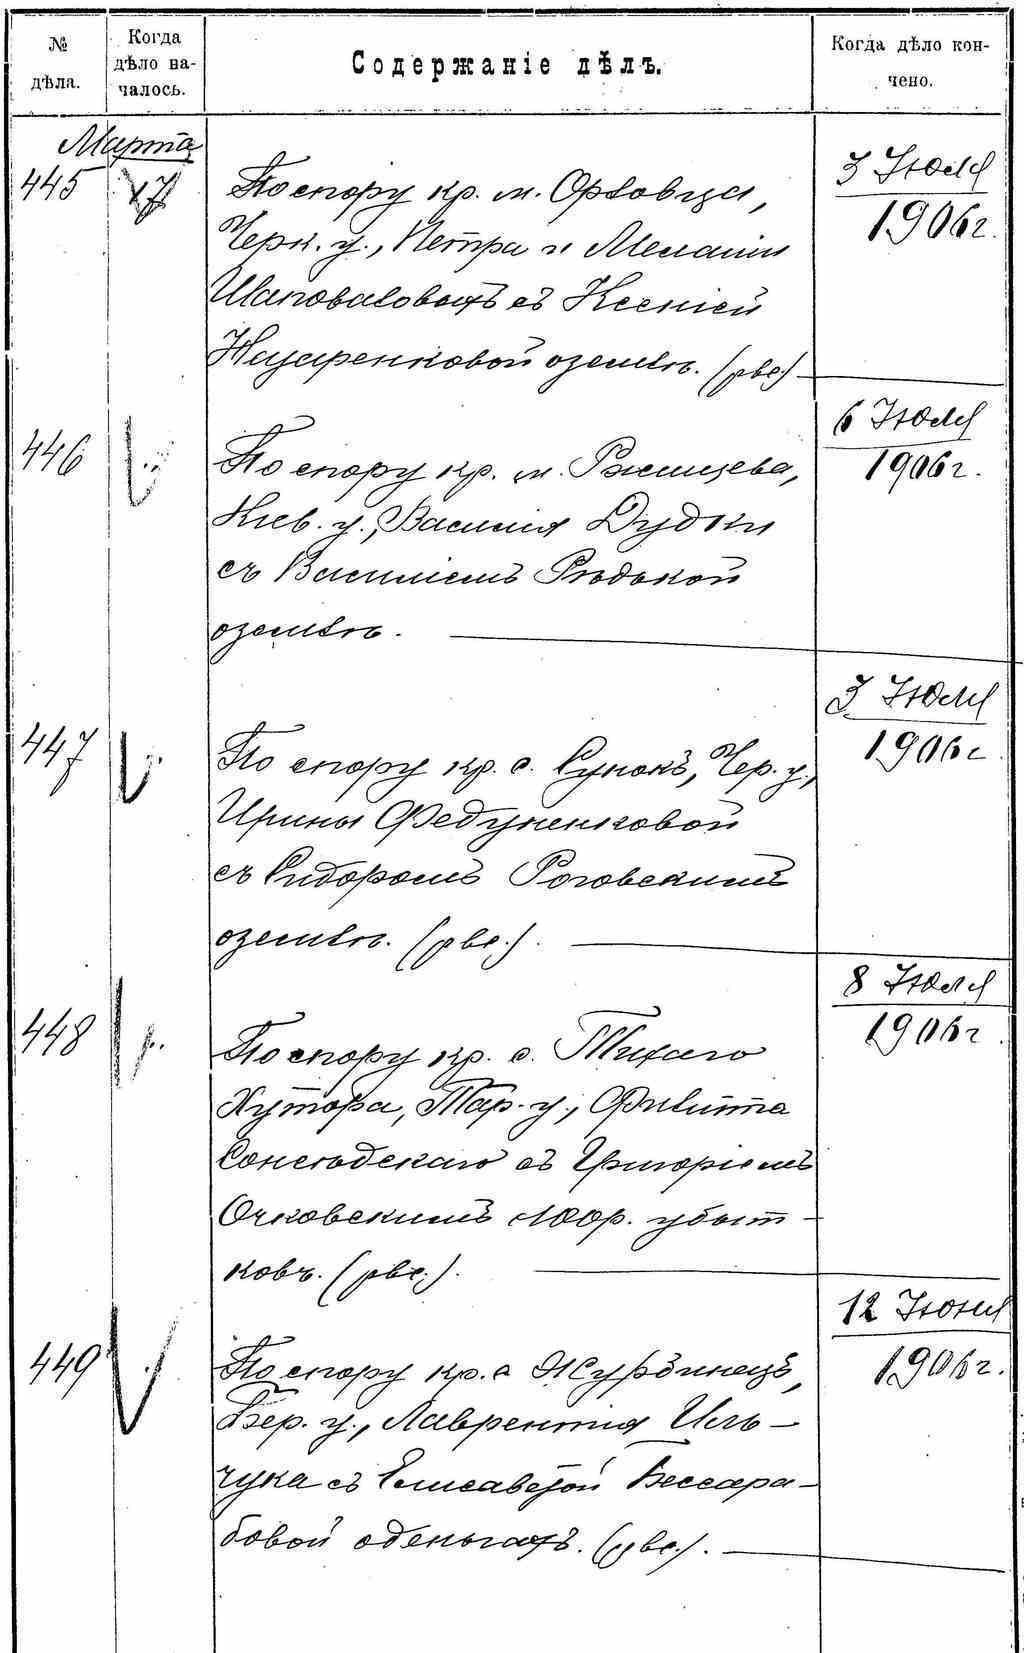 № дѣла.
Когда дѣло на-
чалось.
Содержаніе дѣлъ.
Когда дѣло кон-
чено.
Марта
445
17
По спору кр. м. Орловца,
Черк. у., Петра и Меланіи
Шаповаловыхъ съ Ксеніей
Назаренковой о землѣ. (рвс.)
3 Июля
1906г.
446
По спору кр. м. Ржищева,
Кіев. у., Василія Дудки
съ Василіемъ Рѣдькой
о землѣ.
6 Июля
1906г.
447
По спору кр. с. Сунокъ, Чер. у.,
Ирины Федуненковой
съ Сидоромъ Роговскимъ
о землѣ. (рвс.).
3 Июля
1906г
448
По спору кр. с. Тихаго
Хутора, Тар. у., Филиппа
съ Григоріемъ
Очковскимъ убыт-
ковъ. (рвс.).
8 Июля
1906г
449
По спору кр. с Журбинецъ,
Бер. у., Лаврентія Иль-
чука съ Елисаветой Бессара-
бовой о деньгахъ. (рвс.).
12 Июня
1906г.